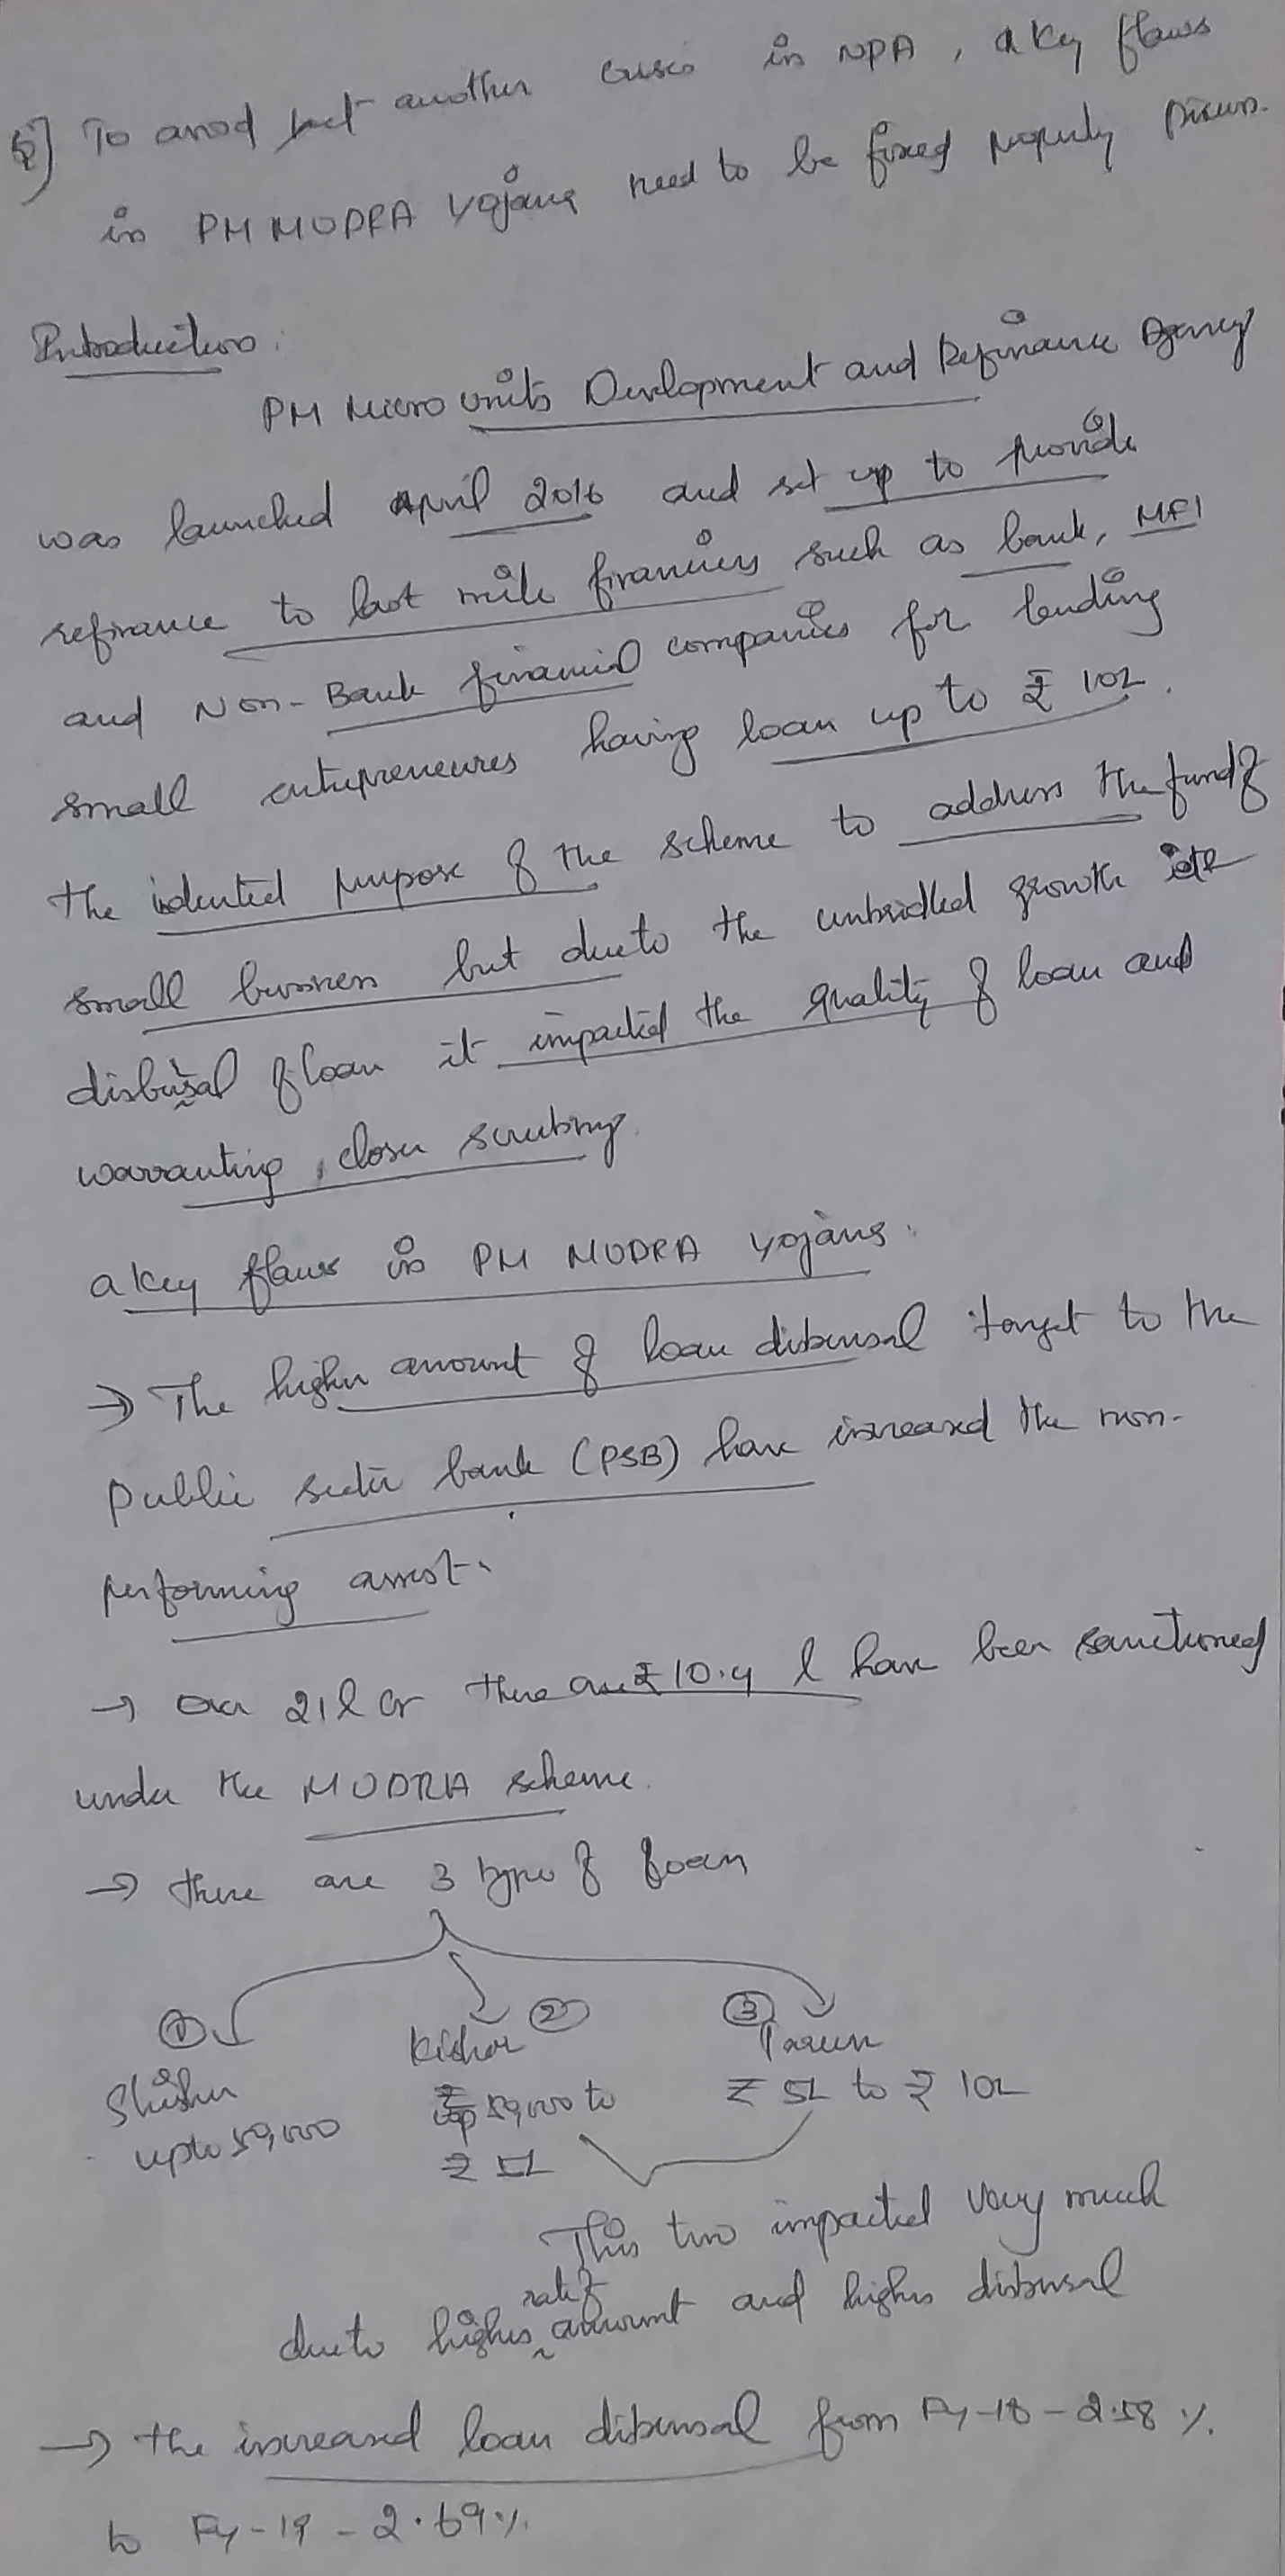 Q] To avoid yet another crisis in NPA, a key flaws
in PM MUDRA Yojana need to be fixed properly Discuss.
Introduction:
PM Micro units Development and Refinance Agency
was launched April 2016 and set up to provide
refinance to last mile financiers such as bank, MFI
and Non-Bank financial companies for lending
small entrepreneures having loan up to ₹ 10L.
the intented purpose of the scheme to address the fund of
small business but due to the unbridled growth
disbursal of loan it impacted the quality of loan and
warranting, closer scrutiny.
a key flaws in PM MUDRA Yojana.
→ The higher amount of loan disbursal target to the
Public sector bank (PSB) have increased the non-
performing asset.
→ Over 21 l cr there are ₹ 10.4 l have been sanctioned
under the MUDRA scheme.
→ there are 3 type of loan
① ② ③
Shishu Kishor Tarun
upto 50,000 ₹ 50,000 to ₹ 5L to ₹ 10L
₹ 5L
This two impacted very much
rate of
due to highes amount and highes disbursal
→ the increased loan disbursal from Fy-18 - 2.58 %.
to Fy-19 - 2.69%.